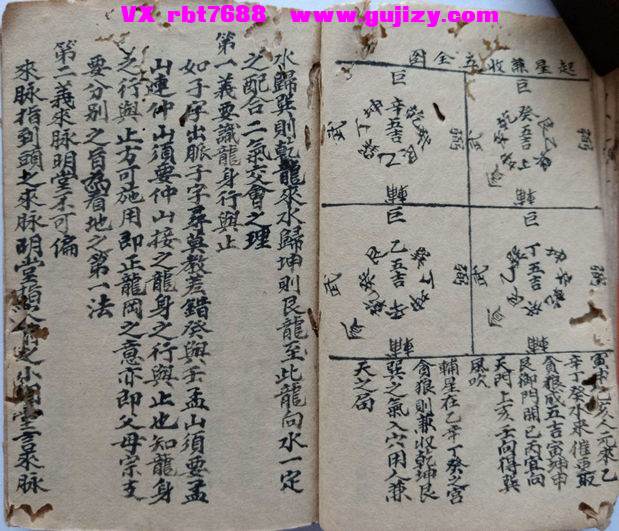 VX rbt7688 www.gujizy.com
起星兼收五吉全图
巨
辛五吉
武
巨
癸五吉
武
巨
乙五吉
武
巨
丁五吉
武
寅戌巳亥人元來乙
辛丁癸水來催
貪狼成五吉寅坤申
艮御門開巳丙宜向
天門上亥壬向得巽
風吹
輔星在乙辛丁癸之宮
貪狼則兼收乾坤艮
巽之氣入穴用人兼
天之局
水歸巽則乾龍來水歸坤則艮龍至此龍向水一定
之配合二氣交會之理
第一義要識龍身行與止
如子字出脈子字尋莫教差錯癸與壬孟山須要孟
山連仲山須要仲山接之龍身之行與止也知龍身
之行與止方可施用即正龍岡之意亦即父母宗支
要分別之旨為看地之第一法
第二義來脈明堂不可偏
來脈指到頭之來脈明堂穴前之小明堂言來脈